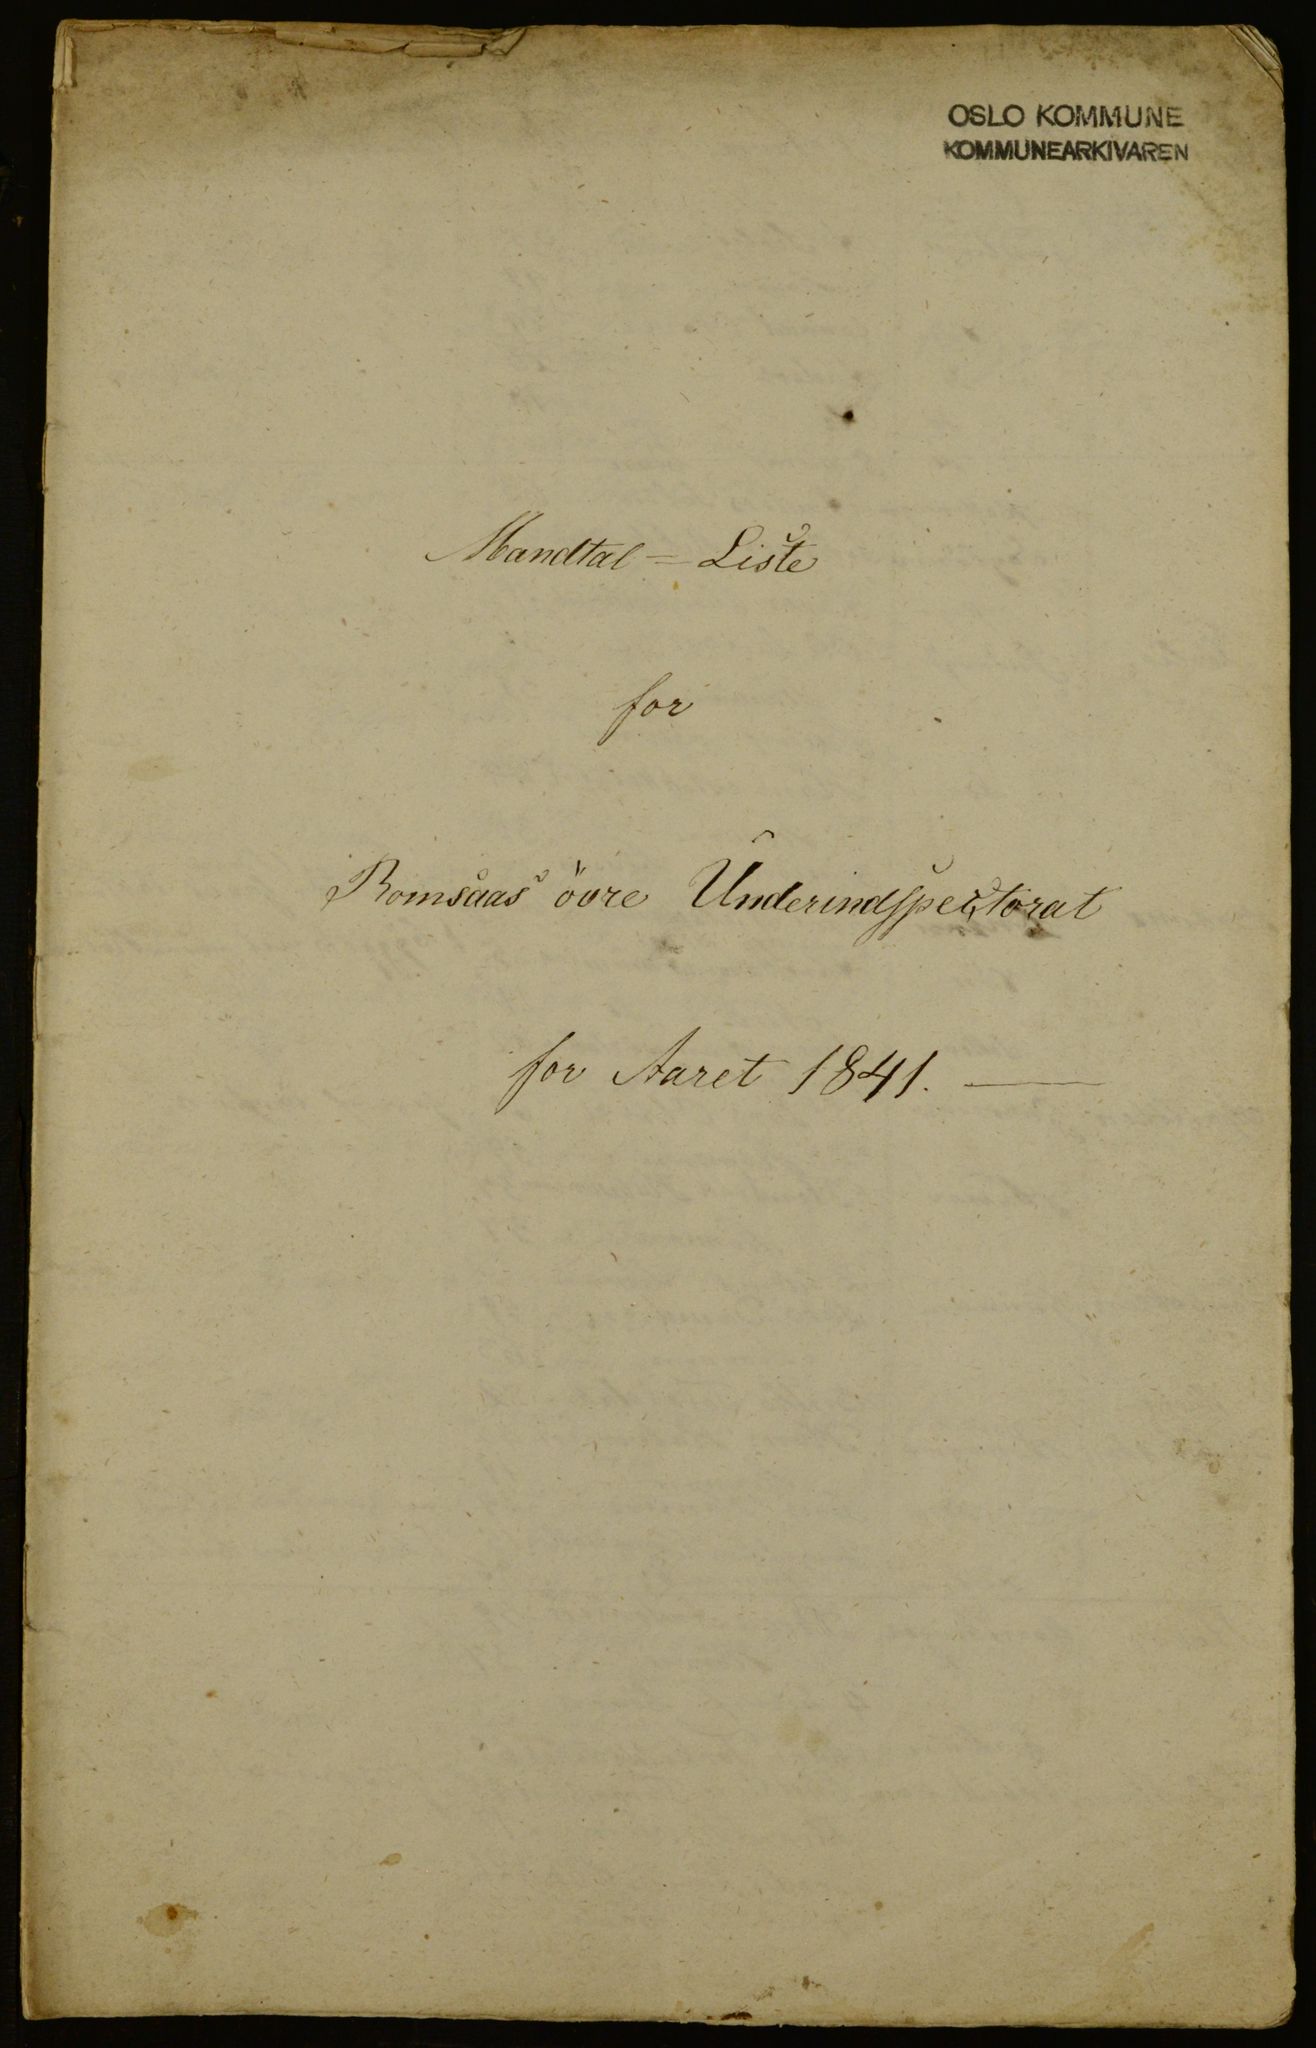 OSLO KOMMUNE
KOMMUNEARKIVAREN
Mandtal = Liste
for
Romsaas övre Underindspectorat
for Aaret 1841. —